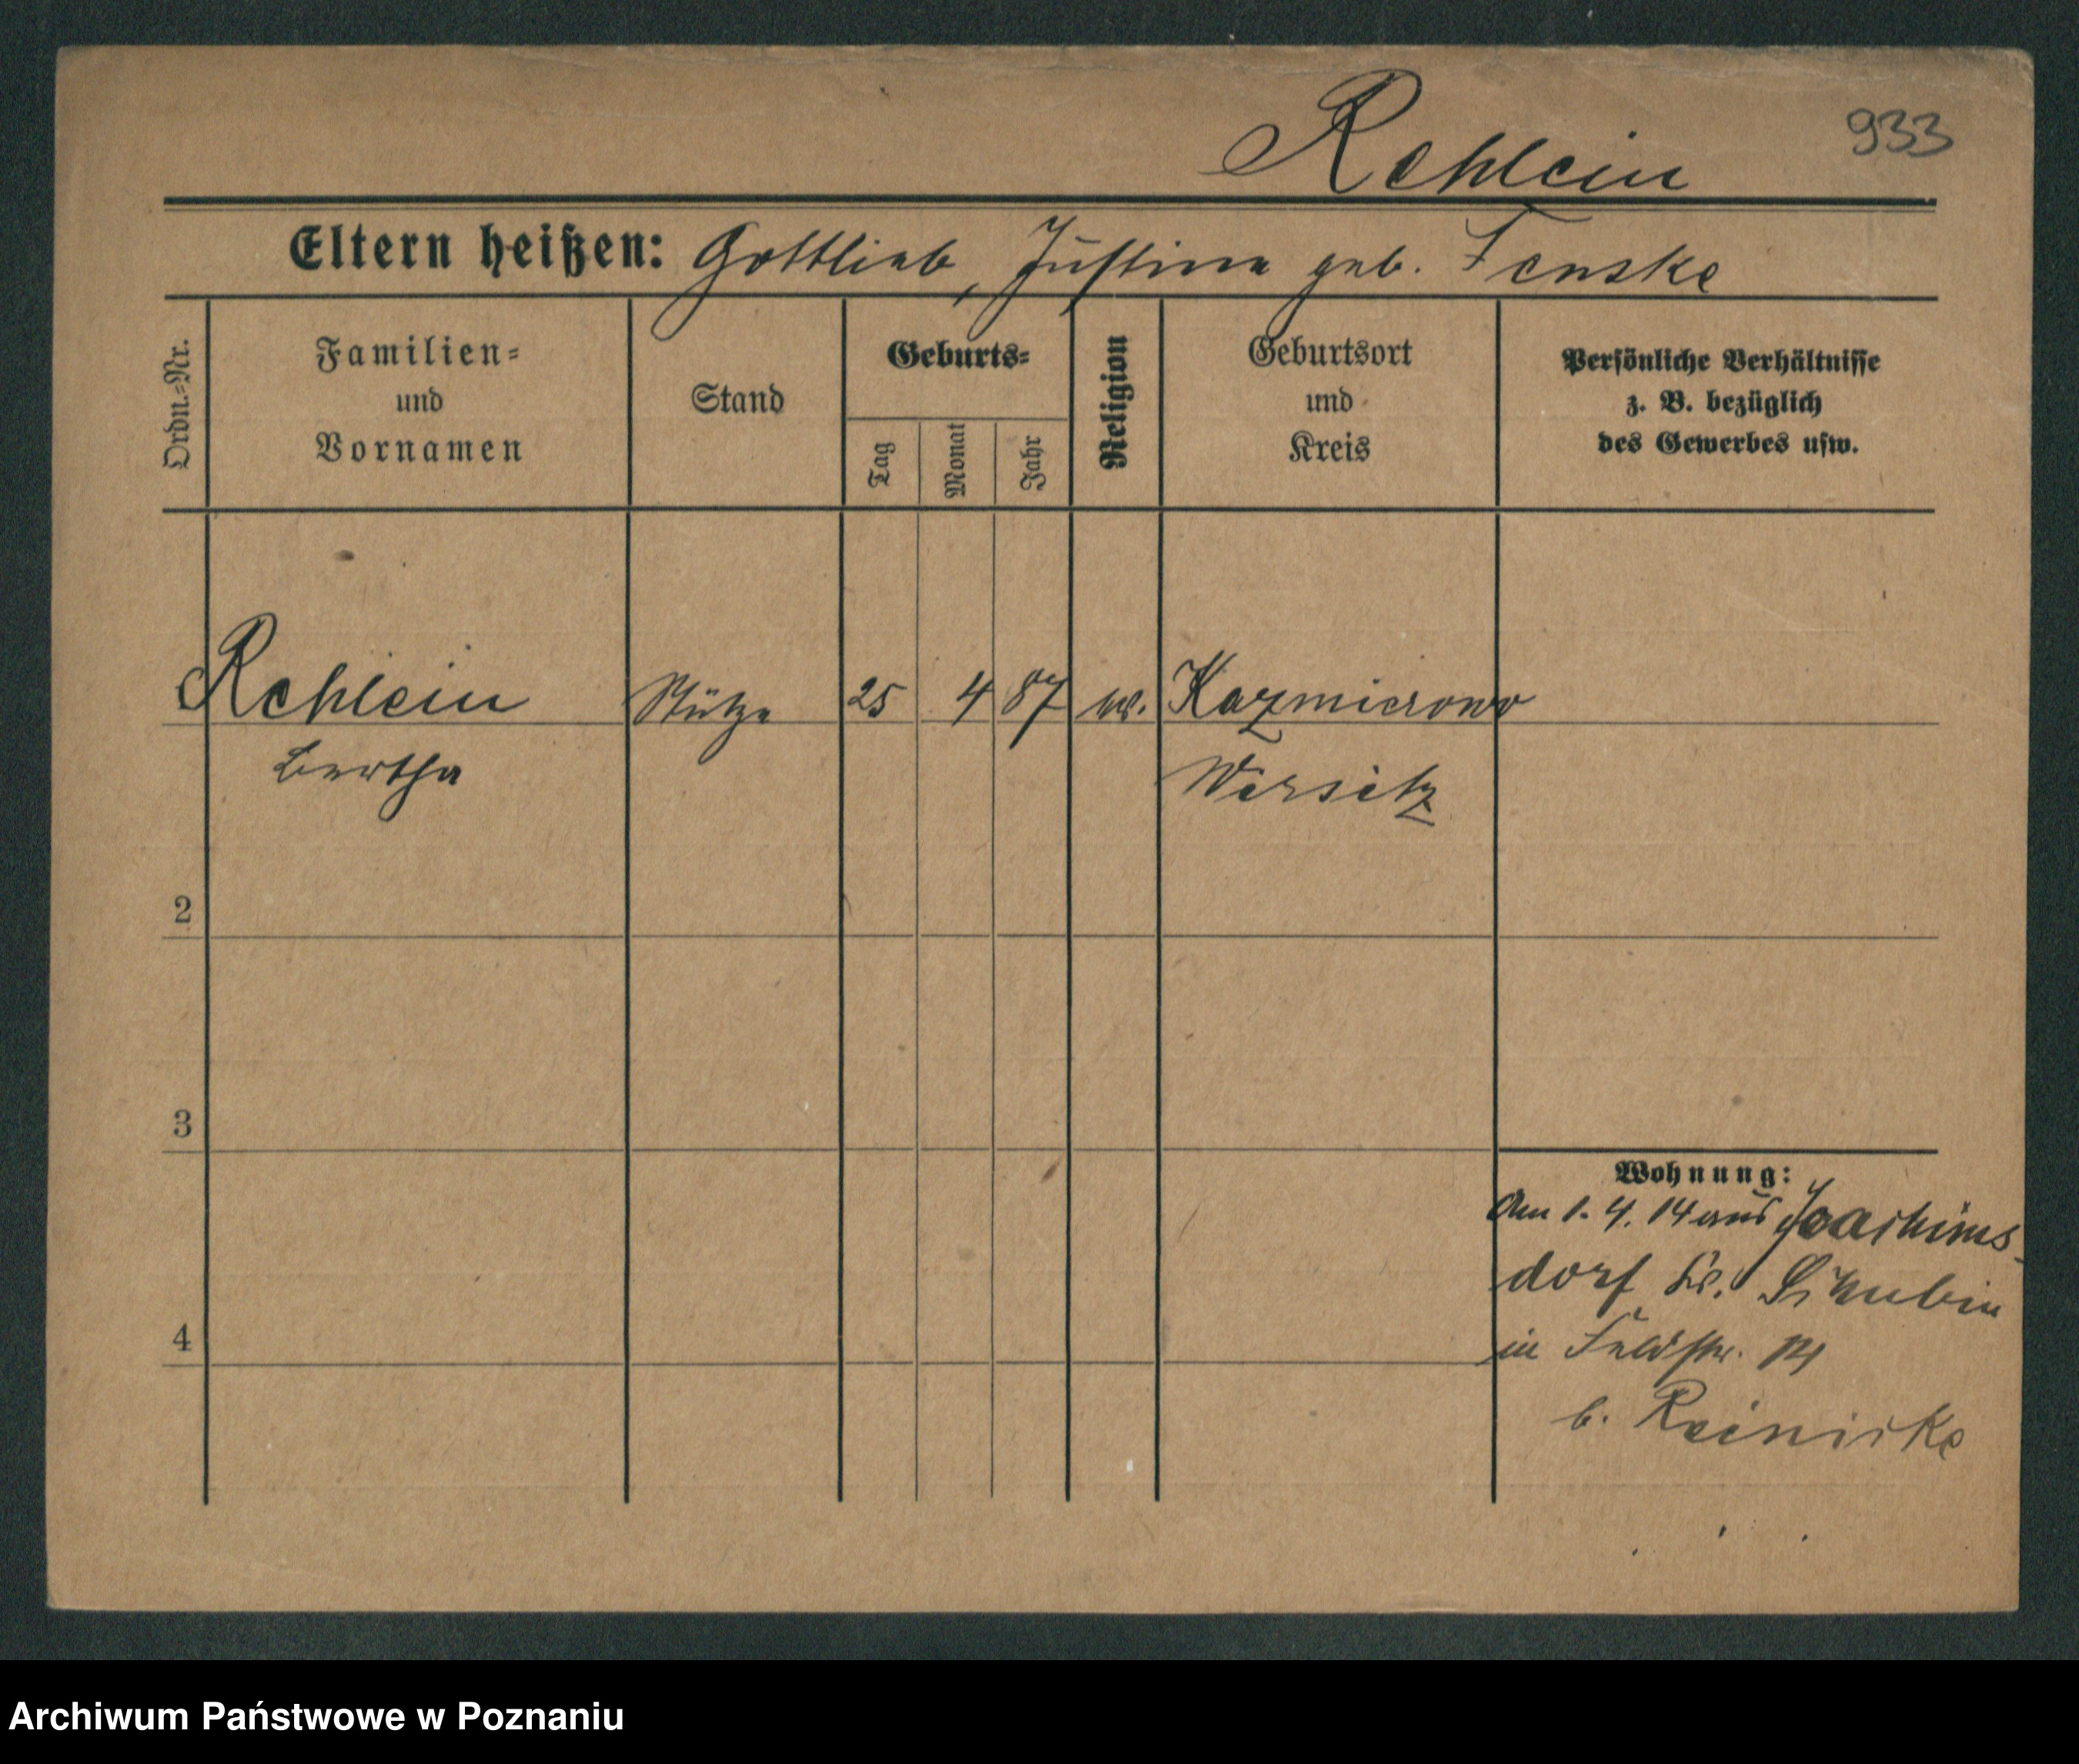 933
Rehlein
Eltern heißen: Gottlieb, Justina geb. Fenske
Ordn.=Nr.
Familien=
und
Vornamen
Stand
Geburts=
Tag
Monat
Jahr
Religion
Geburtsort
und
Kreis
Persönliche Verhältnisse
z. B. bezüglich
des Gewerbes usw.
Rehlein Stütze 25 4 87 ev. Kazmierowo
Bertha Wirsitz
2
3
4
Wohnung:
Am 1. 4. 14 aus Joachims-
dorf Kr. Schubin
in Feldstr.
b. Reinicke
Archiwum Państwowe w Poznaniu